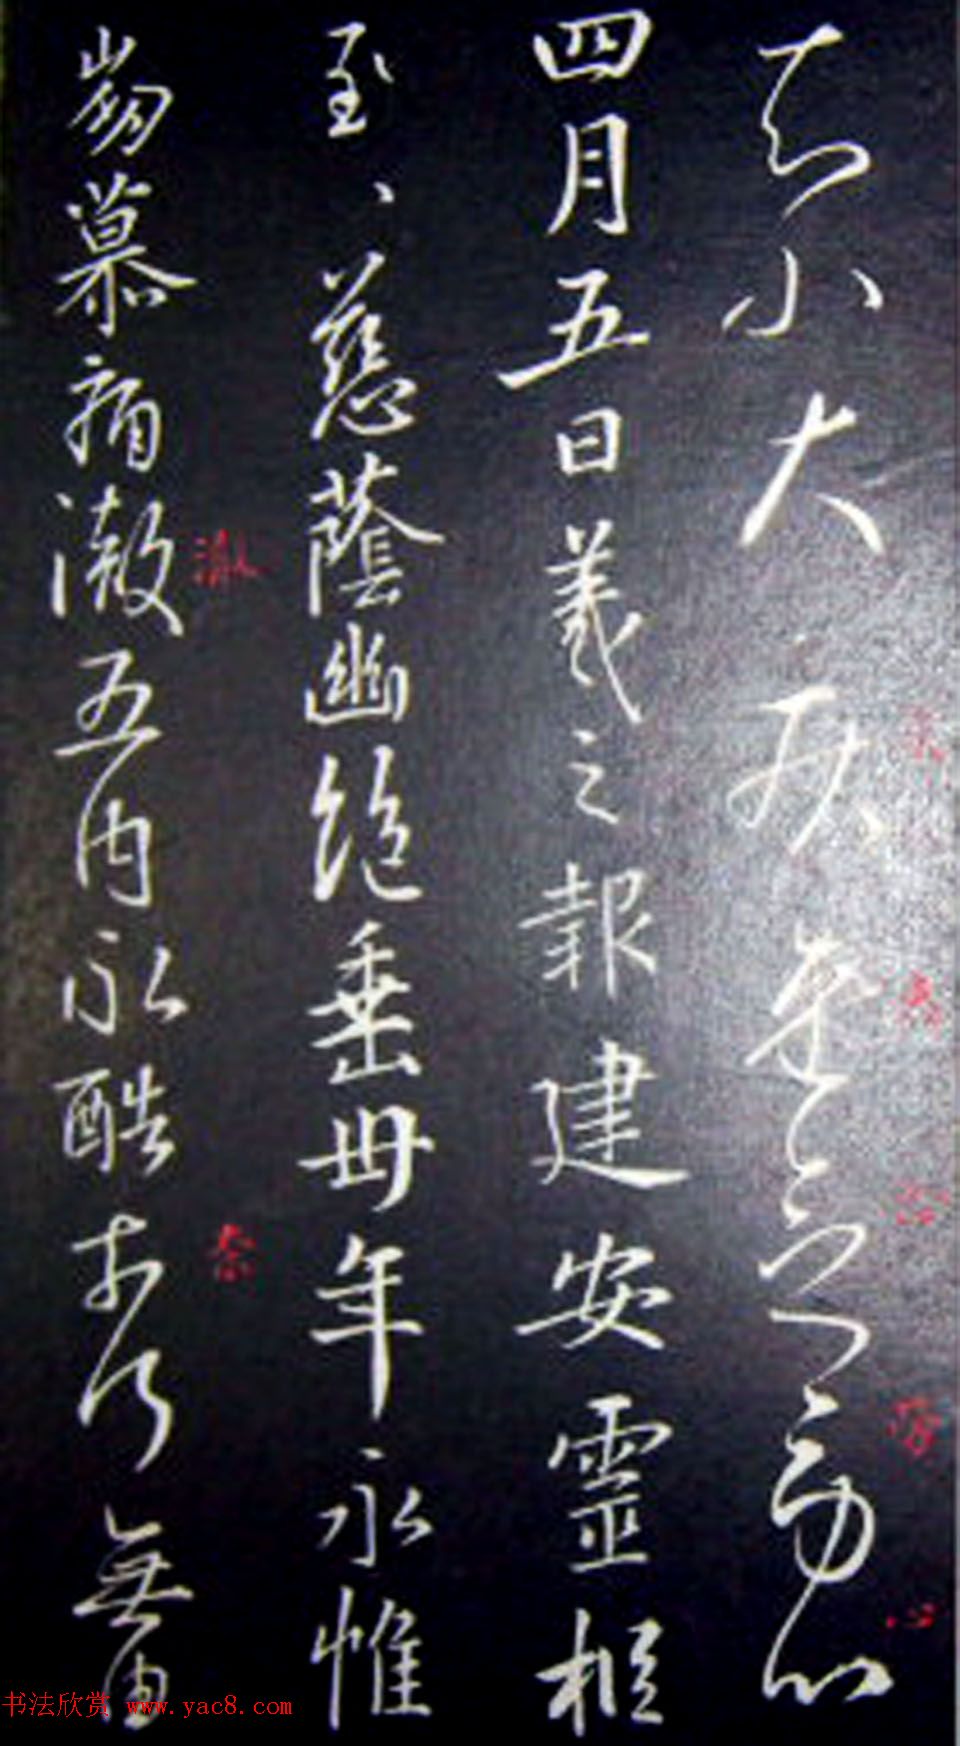 知小大心
四月五日羲之報建安靈柩
至慈蔭幽絕垂卅年永惟
崩慕痛澈五內永酷奈何無由
澈
奈
心
书法欣赏 www.yac8.com